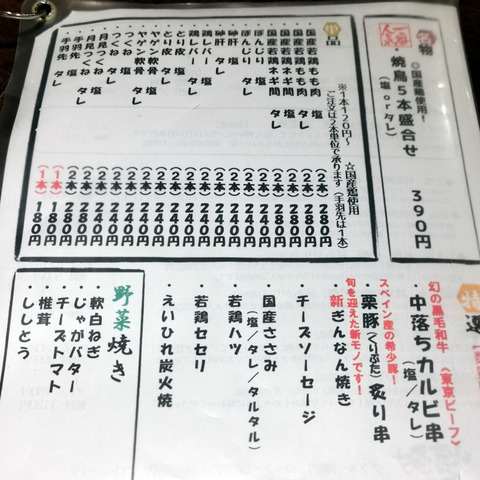 名物
一番人気
◎国産鶏使用!
・焼鳥5本盛合せ
(塩orタレ) 390円
※1本120円~ ☆国産鶏使用
ご注文は2本単位で承ります(手羽先は1本)
・国産若鶏もも肉 塩 (2本) 280円
・国産若鶏もも肉 タレ (2本) 280円
・国産若鶏ネギ間 塩 (2本) 280円
・国産若鶏ネギ間 タレ (2本) 280円
・ぼんじり 塩 (2本) 240円
・ぼんじり タレ (2本) 240円
・砂肝 塩 (2本) 240円
・砂肝 タレ (2本) 240円
・若鶏レバー 塩 (2本) 240円
・若鶏レバー タレ (2本) 240円
・とり皮 塩 (2本) 240円
・とり皮 タレ (2本) 240円
・ヤゲン軟骨 塩 (2本) 240円
・ヤゲン軟骨 タレ (2本) 240円
・つくね 塩 (2本) 240円
・つくね タレ (2本) 240円
・月見つくね タレ (2本) 280円
・手羽先 塩 (1本) 180円
・手羽先 タレ (1本) 180円
特選
幻の黒毛和牛《東京ビーフ》
・中落ちカルビ串
(塩/タレ)
スペイン産の希少豚!
・栗豚(くりぶた)炙り串
旬を迎えた新モノです!
・新ぎんなん焼き
・チーズソーセージ
・国産ささみ
(塩/タレ/タルタル)
・若鶏ハツ
・若鶏セセリ
・えいひれ炭火焼
野菜焼き
・軟白ねぎ
・じゃがバター
・チーズトマト
・椎茸
・ししとう